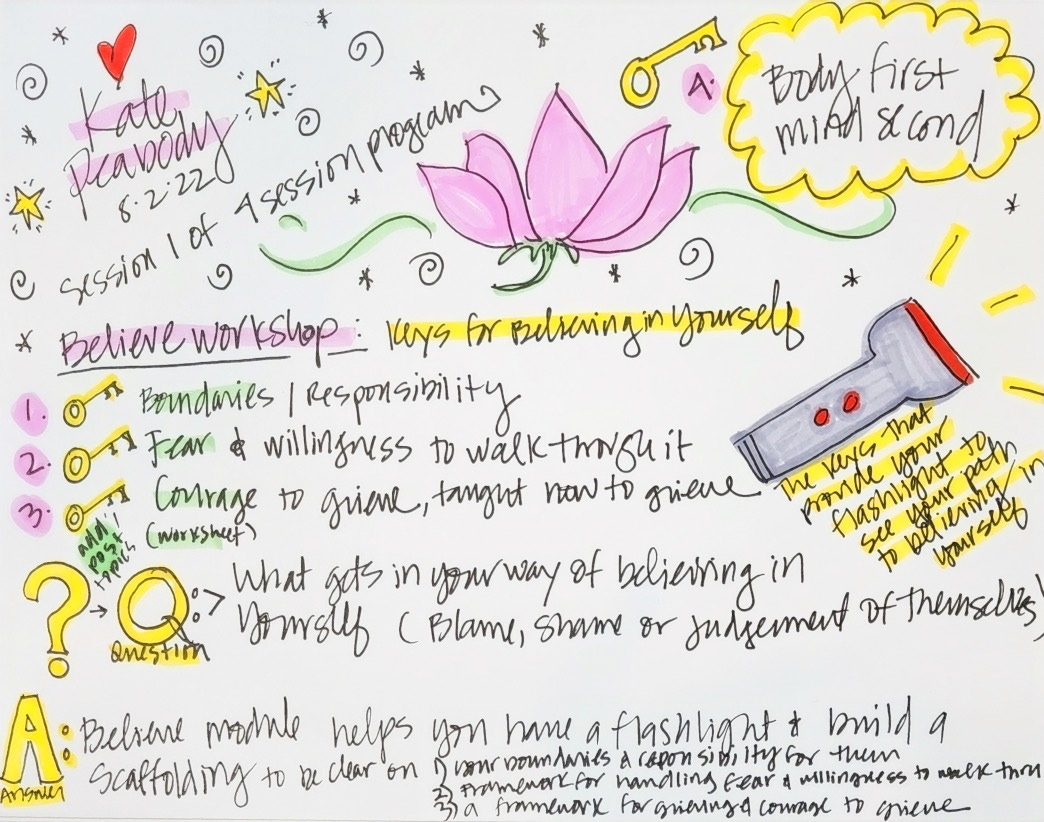 Kate
Peabody
8.2.22
Session 1 of 4 session program
4.
Body first
mind second
Believe workshop: Keys for Believing in Yourself
1. Boundaries / Responsibility
2. Fear & willingness to walk through it
3. Courage to grieve, taught how to grieve
(worksheet)
add
post
topics
The keys that
provide your
flashlight to
see your path
to believing in
yourself
? → Q:> What gets in your way of believing in
Yourself (Blame, shame or judgement of themselves)
Question
A: Believe module helps you have a flashlight & build a
scaffolding to be clear on 1) your boundaries & responsibility for them
2) Framework for handling fear & willingness to walk thru
3) a framework for grieving & courage to grieve
Answer